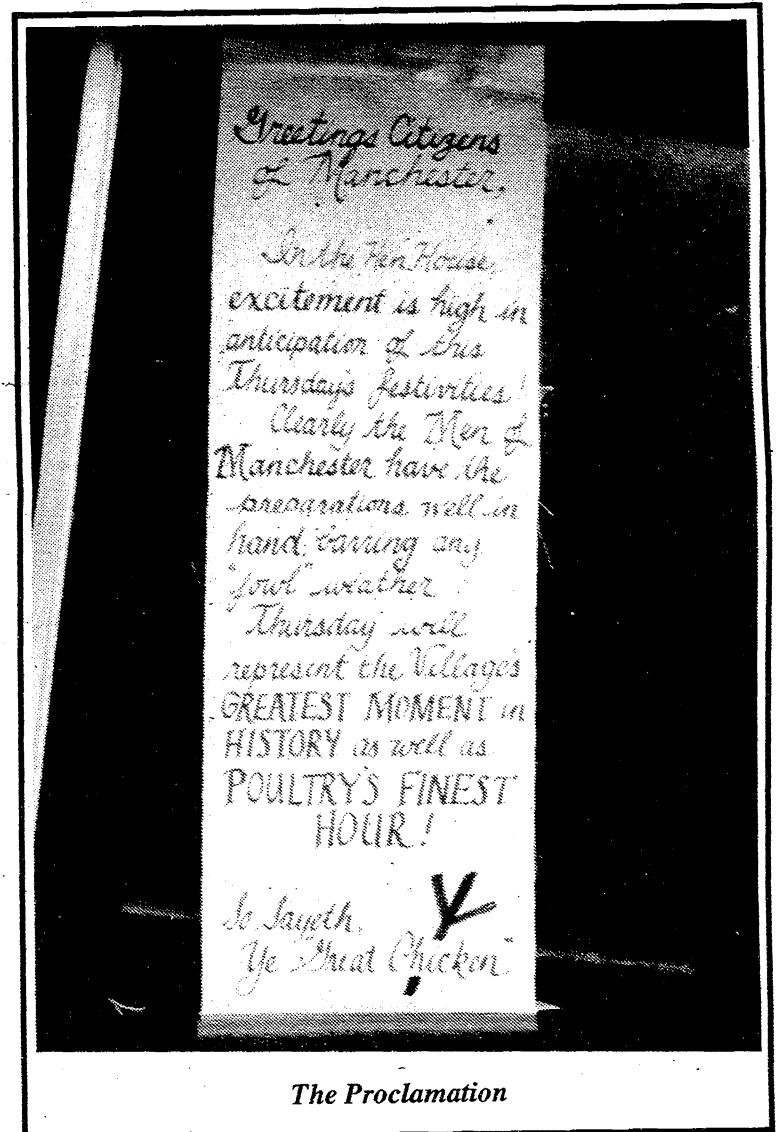 Greetings Citizens
of Manchester,
In the Hen House,
excitement is high in
anticipation of this
Thursday's festivities!
Clearly the Men of
Manchester have the
preparations well in
hand; barring any
"fowl" weather
Thursday will
represent the Village's
GREATEST MOMENT in
HISTORY as well as
POULTRY'S FINEST
HOUR!
So Sayeth,
Ye "Great Chicken"
The Proclamation